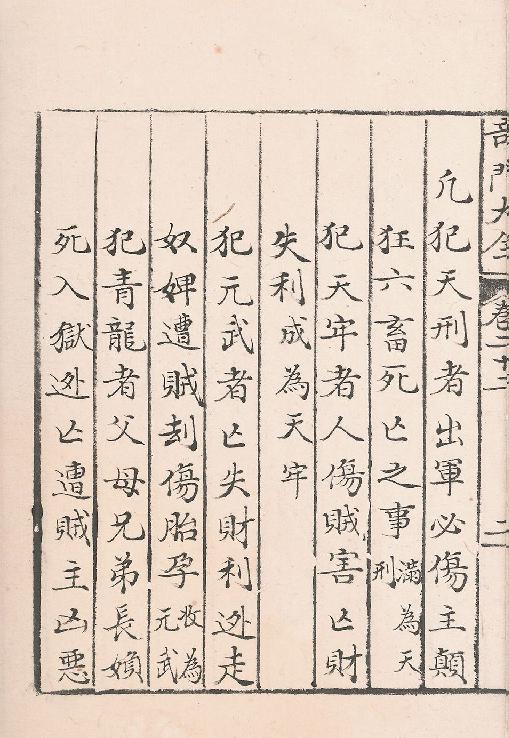 門大全 卷二十三 二
凡犯天刑者出軍必傷主顛
狂六畜死亡之事滿為天刑
犯天牢者人傷賊害亡財
失利成為天牢
犯元武者亡失財利迯走
奴婢遭賊刦傷胎孕收為元武
犯青龍者父母兄弟長媍
死入獄迯亡遭賊主凶惡